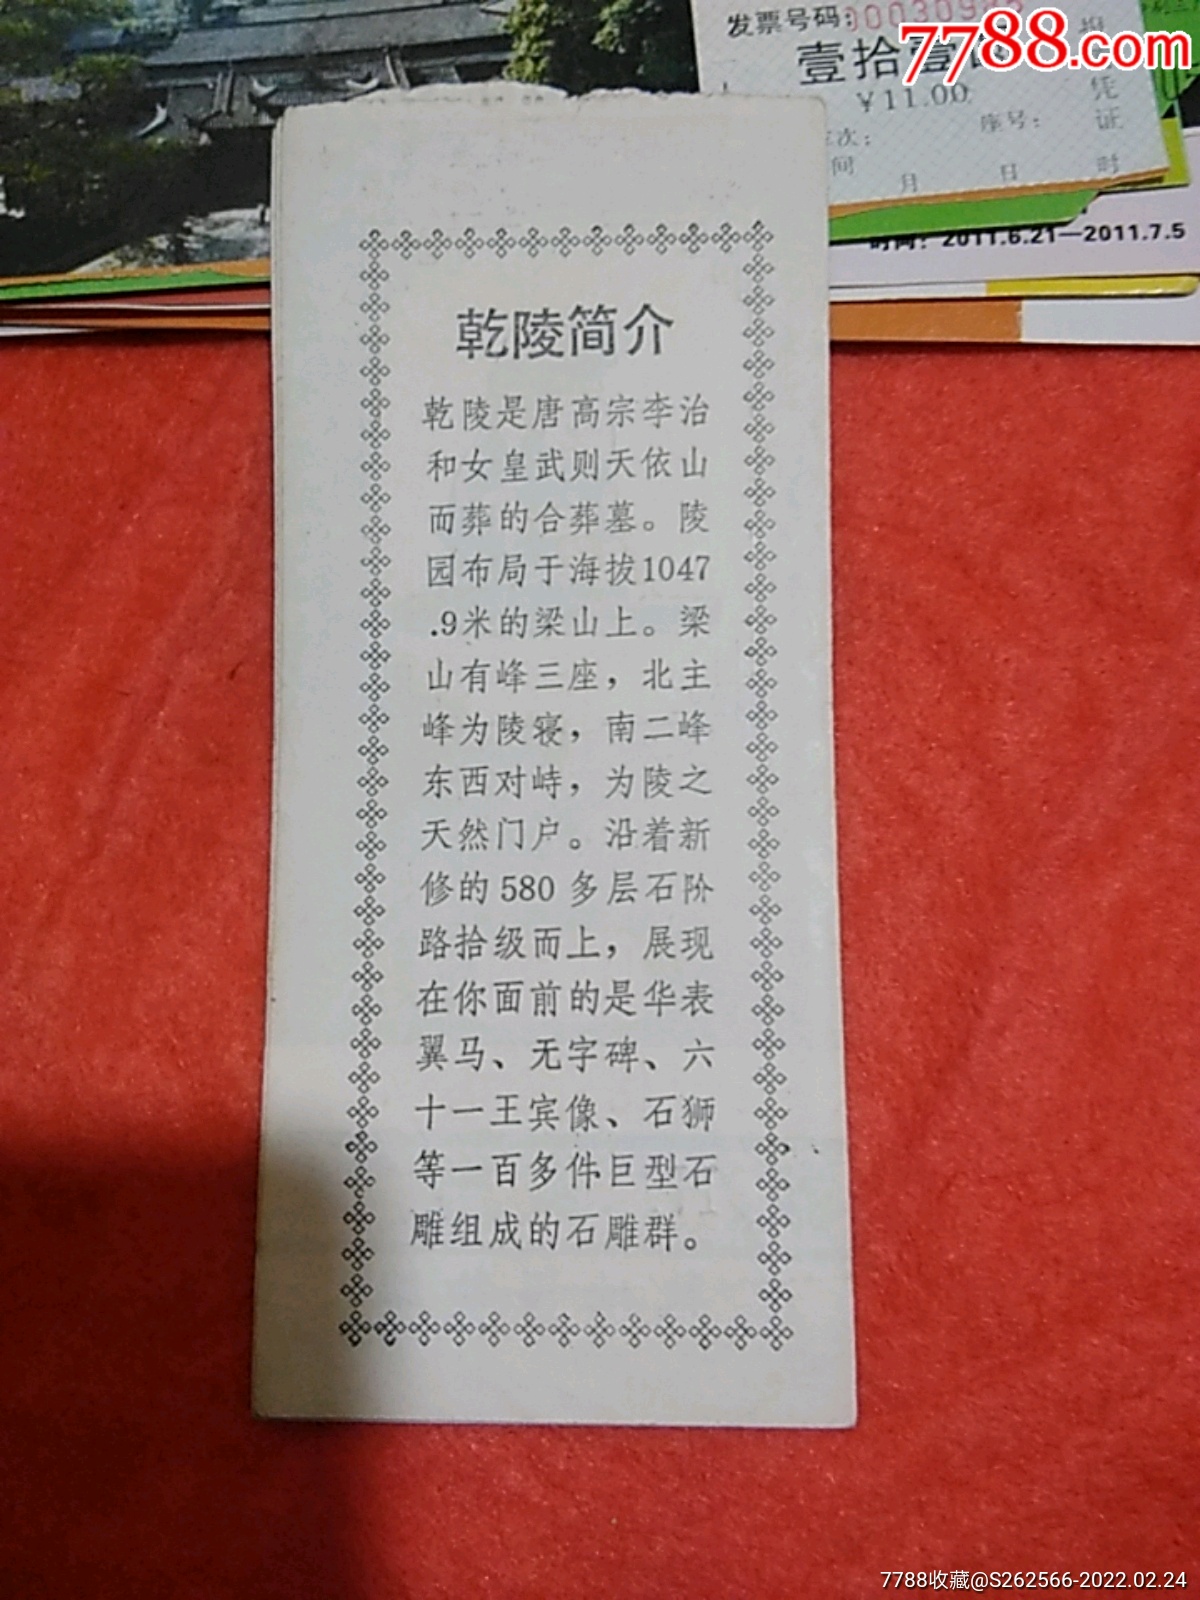 发票号码:
7788.com
¥11.00
座号:
凭
证
间
月
日
时
时间：2011.6.21—2011.7.5
乾陵简介
乾陵是唐高宗李治
和女皇武则天依山
而葬的合葬墓。陵
园布局于海拔1047
.9米的梁山上。梁
山有峰三座，北主
峰为陵寝，南二峰
东西对峙，为陵之
天然门户。沿着新
修的580多层石阶
路拾级而上，展现
在你面前的是华表
翼马、无字碑、六
十一王宾像、石狮
等一百多件巨型石
雕组成的石雕群。
7788收藏@S262566-2022.02.24